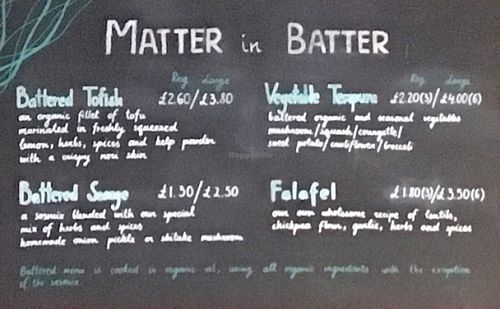 MATTER in BATTER
Reg Large
Battered Tofish £2.60/£3.80
an organic fillet of tofu
marinated in freshly squeezed
lemon, herbs, spices and kelp powder
with a crispy nori skin
Battered Sosage £1.30/£2.50
a sosmix blended with our special
mix of herbs and spices
homemade onion pickle or shitake mushroom
Reg Large
Vegetable Tempura £2.20(3)/£4.00(6)
battered organic and seasonal vegetables
mushroom/squash/courgette/
sweet potato/cauliflower/broccoli
Falafel £1.80(3)/£3.50(6)
our own wholesome recipe of lentils,
chickpea flour, garlic, herbs and spices
Battered menu is cooked in organic oil, using all organic ingredients with the exception
of the sosmix.